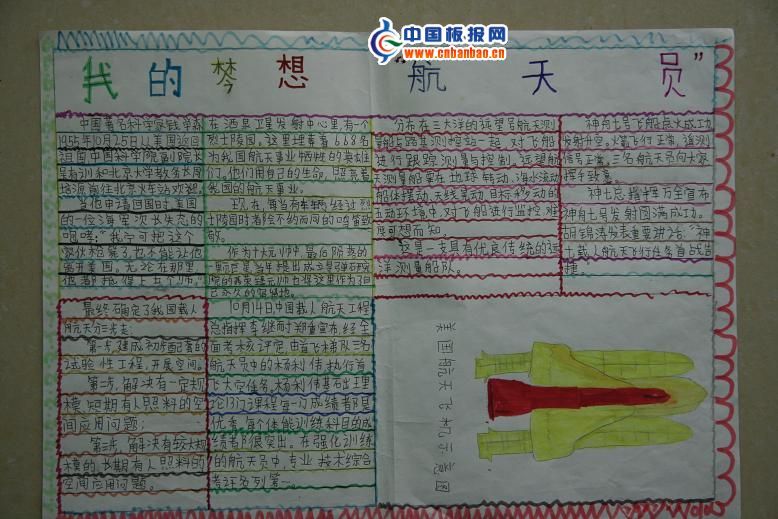 中国板报网
www.cnbanbao.cn
我的梦想
“航天员”
中国著名科学家钱学森
1955年10月25日从美国返回
祖国中国科学院副院长
吴有训和北京大学教务长周
培源前往北京火车站欢迎。
当他申请回国时美国
的一位海军次长失态的
咆哮：“我宁可把这个
家伙枪毙了也不能让他
离开美国。无论在那里
他都抵得上五个师。”
最终确定了我国载人
航天分三步走：
第一步，建成初步配套的
试验性工程，开展空间。
第二步，解决有一定规
模，短期有人照料的空
间应用问题；
第三步，解决有较大规
模的长期有人照料的
空间应用问题。
在酒泉卫星发射中心里有一个
烈士陵园。这里埋着668名
为我国航天事业牺牲的英雄
们。他们用自己的生命，照亮着
我国的航天事业。
现在，每当有车辆经过烈
士陵园时者不约而同的鸣笛致
敬。
作为十大元帅中，最后
10月14日，中国载人航天工程
总指挥李继耐郑重宣布，经全
面考核评定，由首飞梯队三名
航天员中的杨利伟执行首
飞大空任务。杨利伟基础理
论13门课程每一门成绩都是
优秀，每个体能训练科目的成
绩都很突出。在强化训练
的航天员中，专业技术综合
考评名列第一。
分布在三大洋的远望号航天测
量船与路基测控站一起，对飞船
进行跟踪测量与控制，远望航
天测量船要在地球转动、海水流动
船体摆动、天线晃动、目标移动的
动动环境中，对飞船进行监控难
度可想而知。
这是一支具有优良传统的远
洋测量船队。
神舟七号飞船点火成功
发射升空。火箭飞行正常，遥测
信号正常。三名航天员向大家
挥手致意。
神七总指挥万全宣布
神舟七号发射圆满成功。
胡锦涛发表重要讲话：“神
七载人航天飞行任务首战告
捷。
美国航天飞机示意图